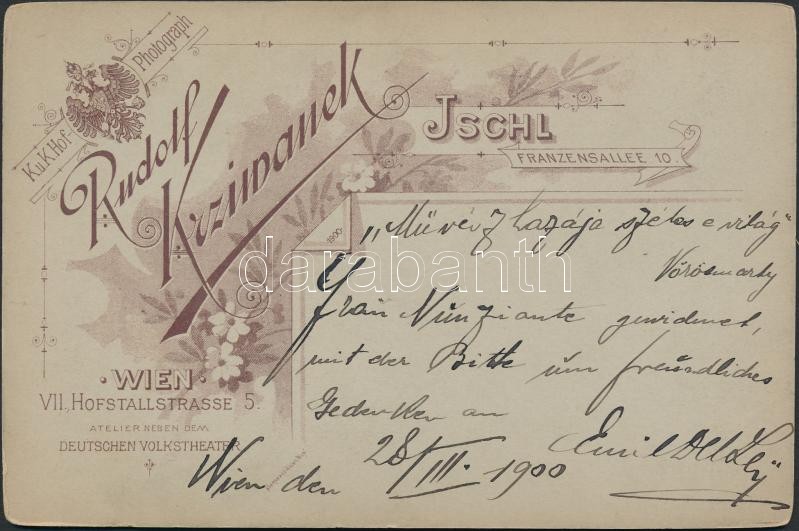 K.u.K. Hof-
Photograph
Rudolf
Krziwanek
JSCHL
FRANZENSALLEE 10.
1900
"Művész hazája széles e világ"
Vörösmarty
Frau Nunziante gewidmet,
mit der Bitte um freundliches
Gedenken an
Wien den 28/III. 1900
WIEN
VII., HOFSTALLSTRASSE 5.
ATELIER NEBEN DEM
DEUTSCHEN VOLKSTHEATER
darabanth